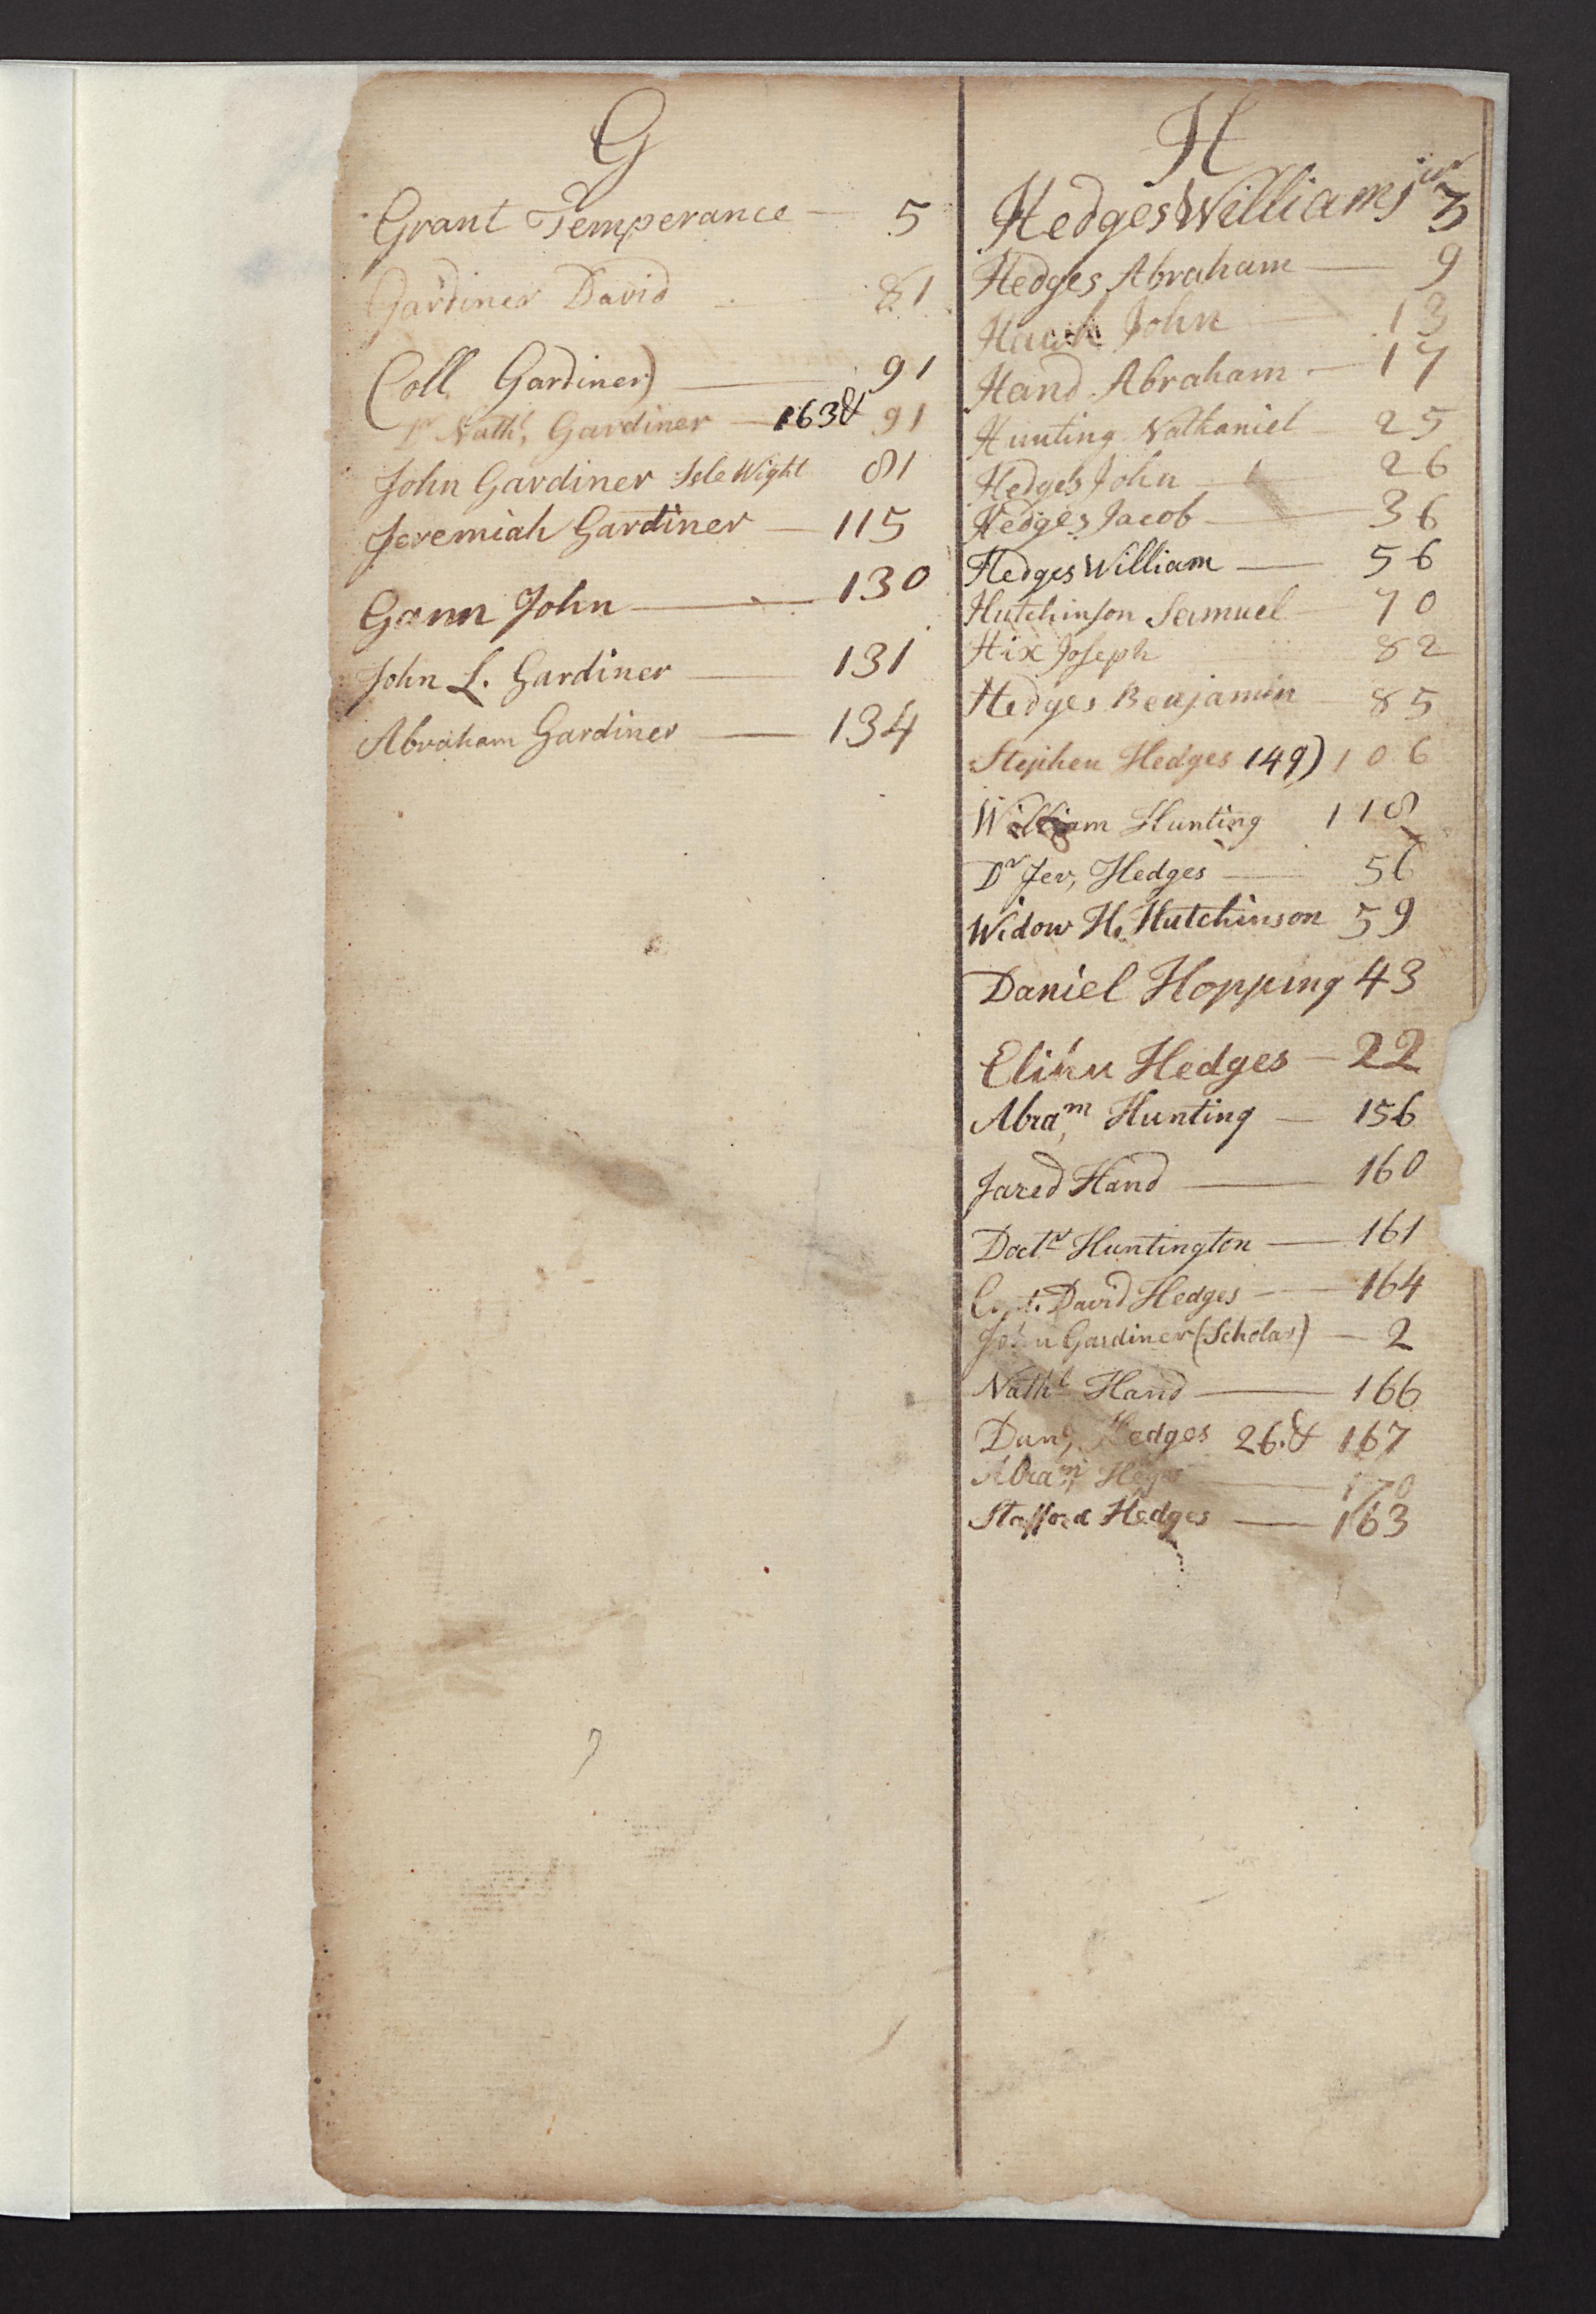 G
Grant Temperance — 5
Gardiner David 81
(Coll Gardiner) — 91
Dr Nathl, Gardiner — 163 & 91
John Gardiner Isle Wight 81
Jeremiah Gardiner — 115
Gann John — 130
John L. Gardiner — 131
Abraham Gardiner — 134
H
Hedges William junr 3
Hedges Abraham — 9
John — 13
Hand Abraham — 17
Hunting Nathaniel 25
Hedges John — 26
Hedges Jacob — 36
Hedges William — 56
Hutchinson Samuel 70
Hix Joseph 82
Hedges Benjamin 85
Stephen Hedges 149) 106
William Hunting 118
Dr Jer, Hedges — 56
Widow H. Hutchinson 59
Daniel Hopping 43
Elihu Hedges — 22
Abram, Hunting — 156
Jared Hand — 160
Doctr Huntington — 161
Capt. David Hedges — 164
John Gardiner (Scholar) — 2
Nathl Hand — 166
Danl, Hedges 26. & 167
Abram, — 170
Stafford Hedges — 163